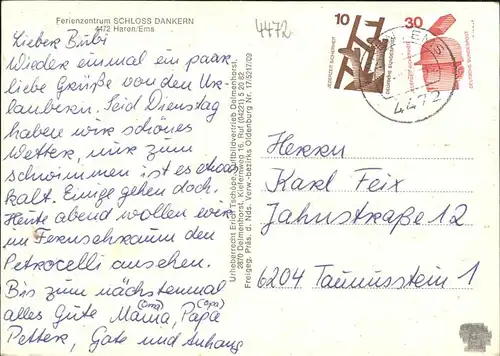 Ferienzentrum SCHLOSS DANKERN
4472 Haren/Ems
Lieber Bubi
Wieder einmal ein paar
liebe Grüße von den Ur-
laubern. Seid Dienstag
haben wir schönes
Wetter, nur zum
schwimmen ist es etwas
kalt. Einige gehen doch.
Heute abend wollen wir
im Fernsehraum den
Petrocelli ansehen.
Bis zum nächstenmal
alles Gute Mama, (Oma) Papa (Opa)
Petter, Gate und Anhang
Urheberrecht Erich Tschöpe, Luftbildvertrieb Delmenhorst,
2870 Delmenhorst, Kiefernweg 16, Ruf (04221) 5 20 82
Freigeg. Präs. d. Nds. Verw.-bezirks Oldenburg Nr. 17-5217/09
4472
10
JEDERZEIT SICHERHEIT
DEUTSCHE BUNDESPOST
30
DEUTSCHE BUNDESPOST
4472
Herrn
Karl Feix
Jahnstraße 12
6204 Taunusstein 1